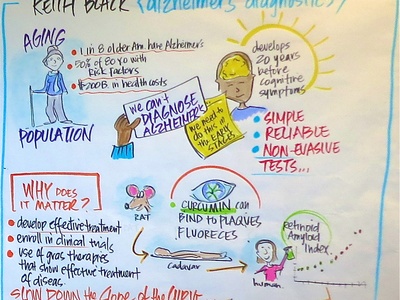 KEITH BLACK (alzheimer's diagnostics)
AGING
POPULATION
• 1 in 8 older Am. have Alzheimer's
• 50% of 80 yo with
Risk Factors
• $200B. in health costs
we can't
DIAGNOSE
ALZHEIMER'S
we need to
do this in
the EARLY
STAGES
develops
20 years
before
cognitive
symptoms
• SIMPLE
• RELIABLE
• NON-EVASIVE
TESTS...
WHY DOES
IT MATTER?
• develop effective treatment
• enroll in clinical trials
• use of therapies
that show effective treatment
of diseas.
SLOW DOWN the slope of the CURVE
RAT
CURCUMIN can
BIND to PLAQUES
FLUORECES
Cadavar
human
Retinoid
Amyloid
Index